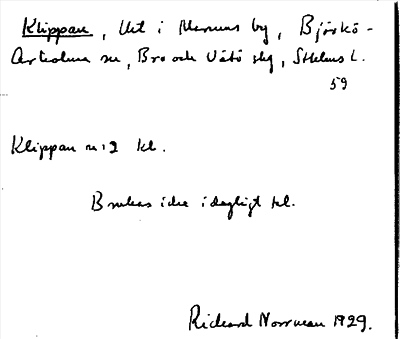 Klippan, Uet i Marums by, Björkö-
Arholma sn, Bro och Vätö skg, Sthlms L.
59
Klippan n:2 kl.
Brukas icke i dagligt tal.
Rickard Norrman 1929.